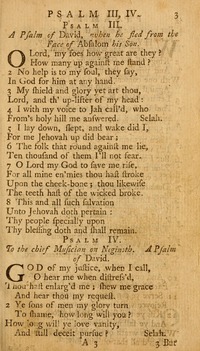 PSALM III, IV. 3
PSALM III.
A Psalm of David, when he fled from the
Face of Absalom his Son.
O Lord, my foes how great are they?
How many up against me stand?
2 No help is to my soul, they say,
In God for him at any hand.
3 My shield and glory yet art thou,
Lord, and th' up-lifter of my head:
4 I with my voice to Jah call'd, who
From's holy hill me answered. Selah.
5 I lay down, slept, and wake did I,
For me Jehovah up did bear;
6 The folk that round against me lie,
Ten thousand of them I'll not fear.
7 O Lord my God to save me rise,
For all mine en'mies thou hast stroke
Upon the cheek-bone; thou likewise
The teeth hast of the wicked broke.
8 This and all such salvation
Unto Jehovah doth pertain:
Thy people specially upon
Thy blessing doth and shall remain.
PSALM IV.
To the chief Musician on Neginoth. A Psalm
of David.
GOD of my justice, when I call,
O hear me when distress'd,
Thou hast enlarg'd me; shew me grace
And hear thou my request.
2 Ye sons of men my glory turn
To shame, how long will you?
How long will ye love vanity,
And still deceit pursue? Selah.
A 3 3 But